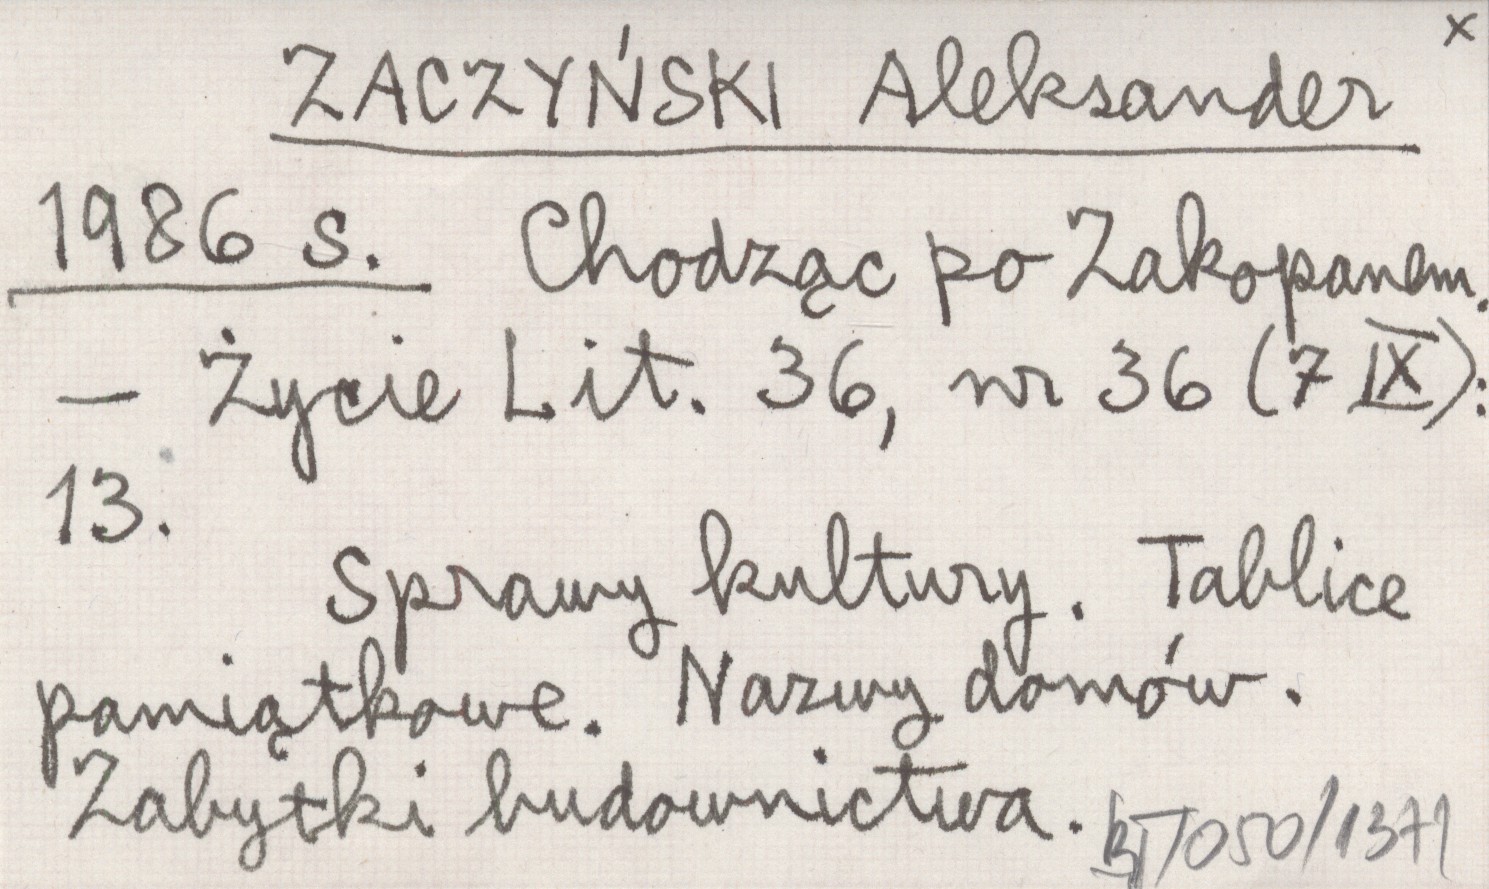 x
ZACZYŃSKI Aleksander
1986 s. Chodząc po Zakopanem.
— Życie Lit. 36, nr 36 (7 IX):
13.
Sprawy kultury. Tablice
pamiątkowe. Nazwy domów.
Zabytki budownictwa.
050/1371